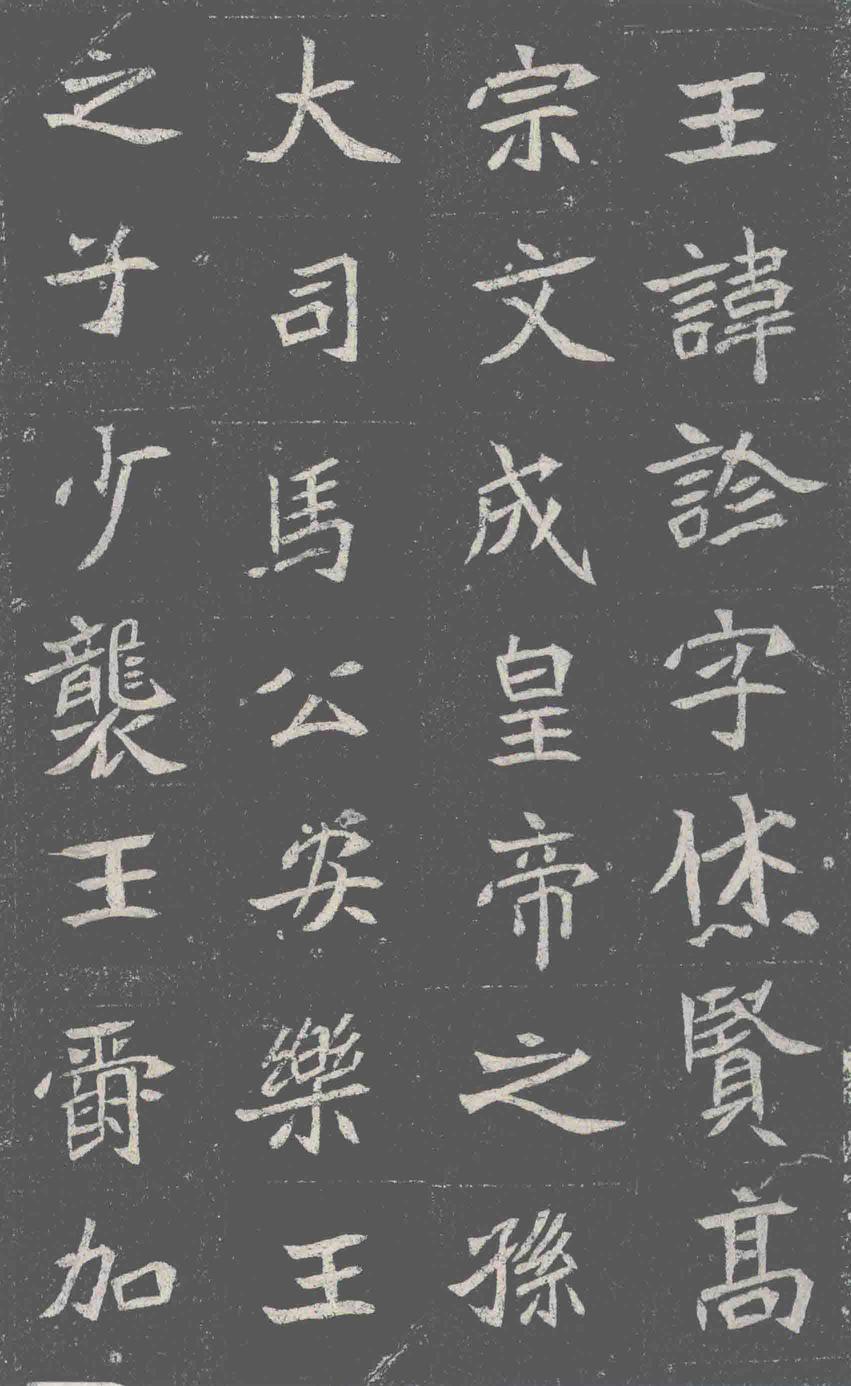 王諱診字烋賢高
宗文成皇帝之孫
大司馬公安樂王
之子少襲王爵加